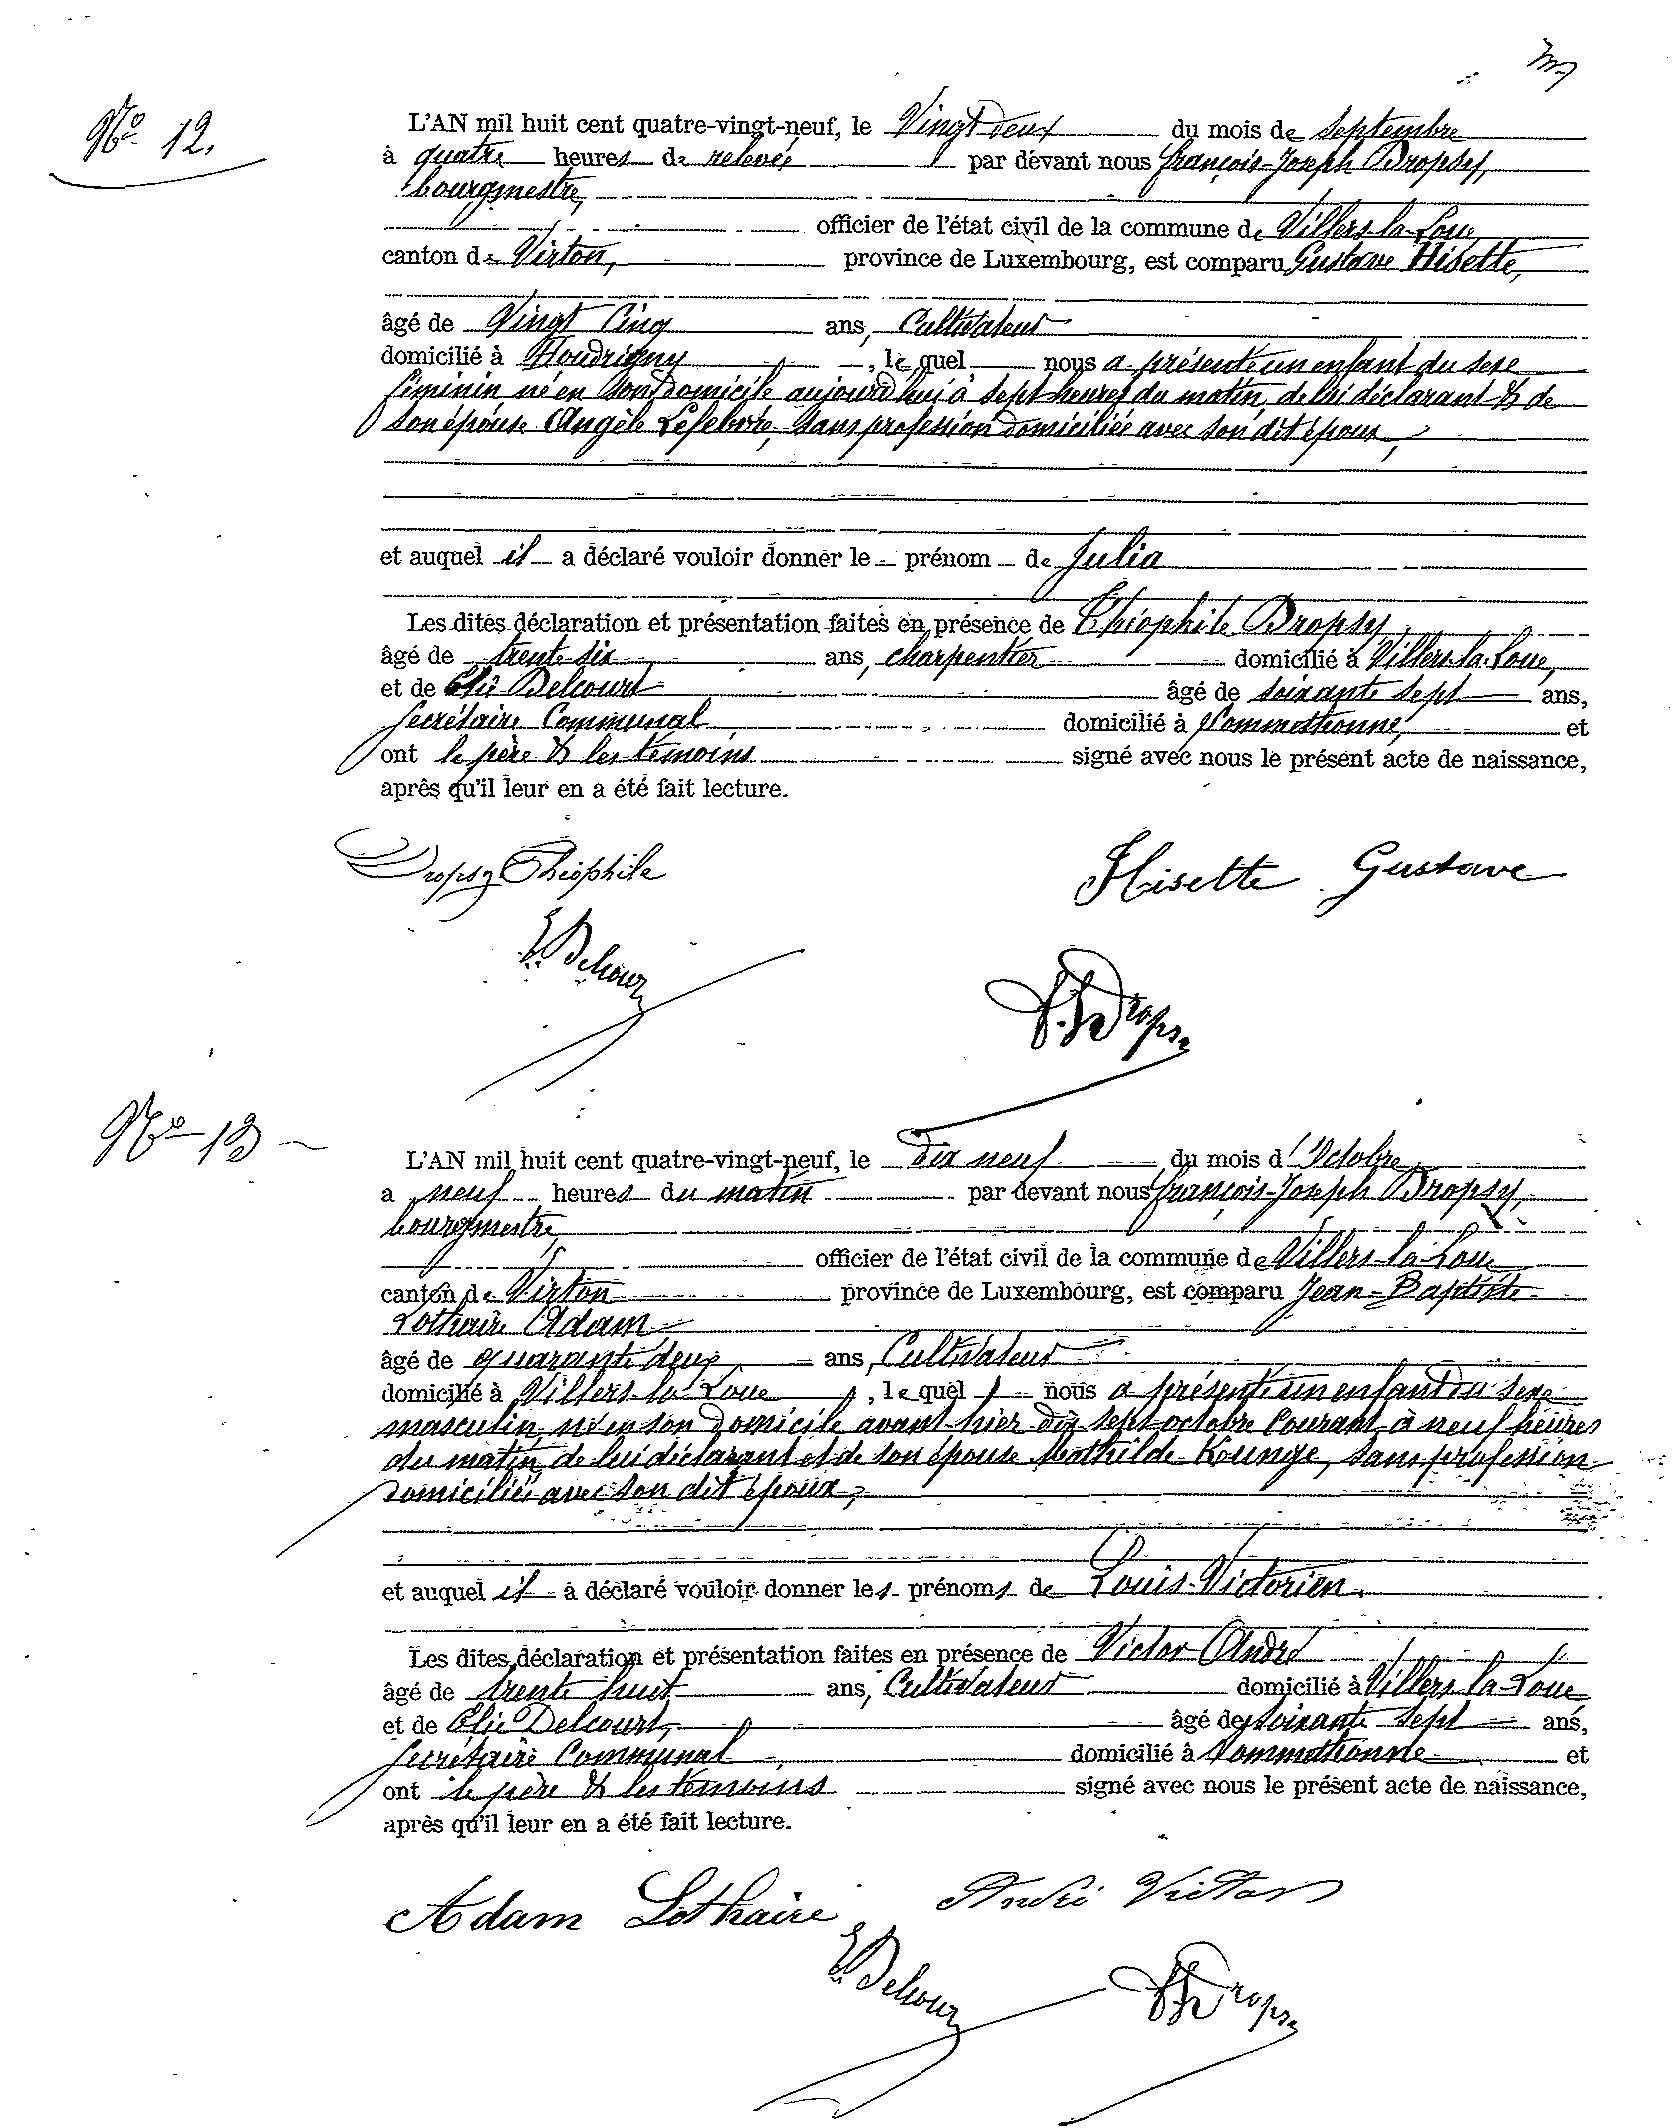 No 12.
L'AN mil huit cent quatre-vingt-neuf, le Vingt deux du mois de septembre
à quatre heures de relevée par devant nous françois-Joseph Dropsy,
bourgmestre,
officier de l'état civil de la commune de Villers-la-Loue
canton de Virton, province de Luxembourg, est comparu Gustave Hisette,
âgé de Vingt Cinq ans, Cultivateur
domicilié à Houdrigny, le quel nous a présenté un enfant du sexe
féminin né en son domicile aujourd'hui à sept heures du matin, de lui déclarant & de
son épouse Angèle Lefebvre, sans profession domiciliée avec son dit époux,
et auquel il a déclaré vouloir donner le prénom de Julia
Les dites déclaration et présentation faites en présence de Théophile Dropsy
âgé de trente-six ans, charpentier domicilié à Villers-la-Loue,
et de Elie Delcourt âgé de soixante sept ans,
secrétaire Communal domicilié à Sommethonne, et
ont le père & les témoins signé avec nous le présent acte de naissance,
après qu'il leur en a été fait lecture.
Dropsy Théophile Hisette Gustave
E. Delcour
F. J. Dropsy
No 13
L'AN mil huit cent quatre-vingt-neuf, le dix neuf du mois d'Octobre
a neuf heures du matin par devant nous françois-Joseph Dropsy,
bourgmestre,
officier de l'état civil de la commune de Villers-la-Loue
canton de Virton province de Luxembourg, est comparu Jean-Baptiste
Lothaire Adam
âgé de quarante deux ans, Cultivateur
domicilié à Villers-la-Loue, le quel nous a présenté un enfant du sexe
masculin, né en son domicile avant-hier dix sept octobre courant, à neuf heures
du matin, de lui déclarant et de son épouse Mathilde Kounge, sans profession
domiciliée avec son dit époux,
et auquel il a déclaré vouloir donner les prénoms de Louis-Victorien.
Les dites déclaration et présentation faites en présence de Victor André
âgé de trente huit ans, Cultivateur domicilié à Villers-la-Loue
et de Elie Delcourt, âgé de soixante sept ans,
secrétaire Communal, domicilié à Sommethonne et
ont le père & les témoins signé avec nous le présent acte de naissance,
après qu'il leur en a été fait lecture.
Adam Lothaire André Victor
E. Delcour
F. J. Dropsy